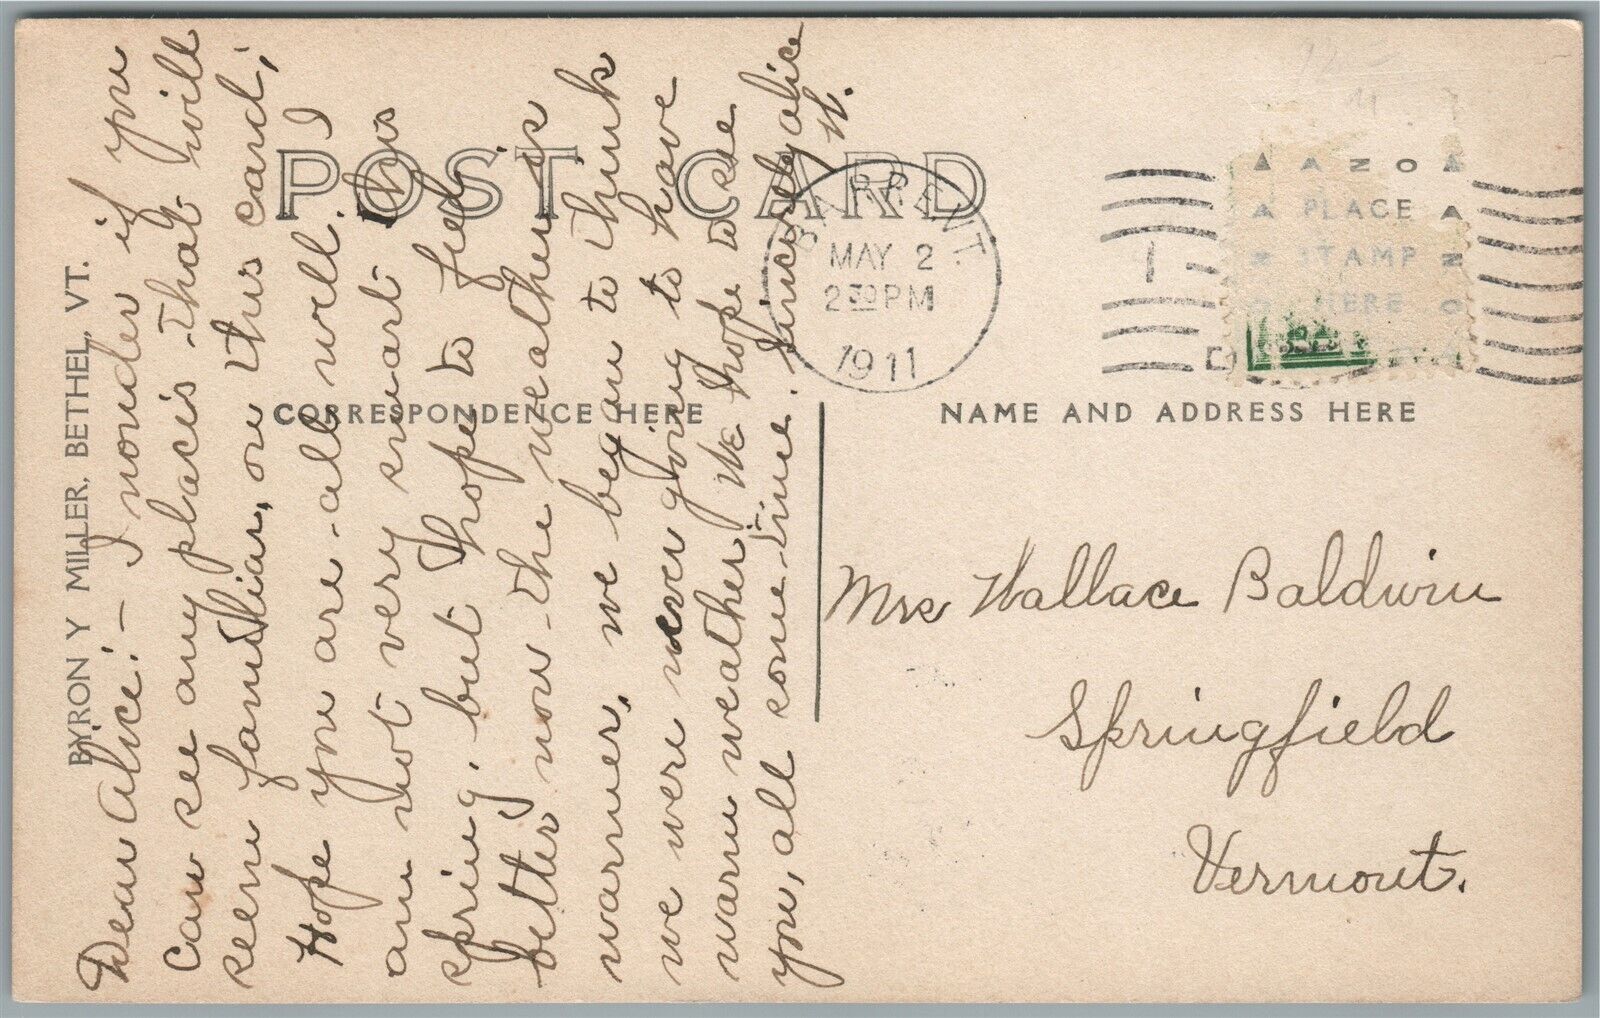 BYRON Y MILLER, BETHEL, VT.
POST CARD
CORRESPONDENCE HERE
NAME AND ADDRESS HERE
AZO
PLACE
STAMP
HERE
BARRE, VT.
MAY 2
2 30 PM
1911
Dear Alice:- I wonder if you
can see any places that will
seem familiar, on this card,
Hope you are all well. I
am not very smart this
spring, but hope to feel
better now the weather is
warmer. we began to think
we were never going to have
warm weather. We hope to see
you, all some time. Sincerely Alice
H.
Mrs Wallace Baldwin
Springfield
Vermont.